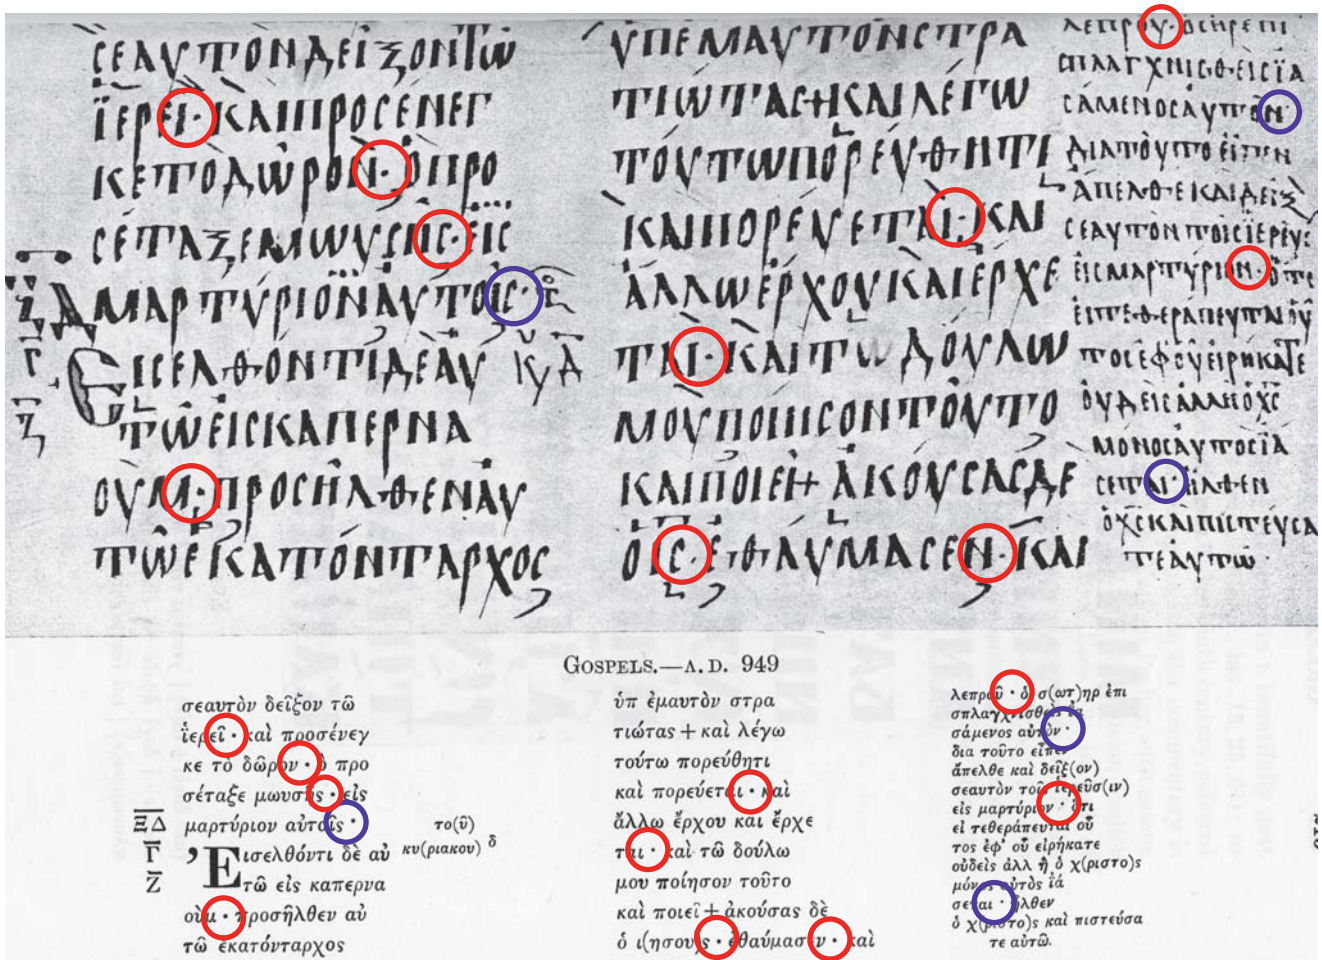 СЕΑΥΤΟΝΔΕΙΞΟΝΤΩ
ΪΕΡΕΙ·ΚΑΙΠΡΟCΕΝΕΓ
ΚΕΤΟΔΩΡΟΝ·ὉΠΡΟ
CΕΤΑΞΕΜΩΥCΗC·ΕΙC
ΜΑΡΤΥΡΙΟΝΑΥΤΟΙC·
ΕΙCΕΛΘΟΝΤΙΔΕΑΥ
ΤΩΕΙCΚΑΠΕΡΝΑ
ΟΥΜ·ΠΡΟCΗΛΘΕΝΑΥ
ΤΩΕΚΑΤΟΝΤΑΡΧΟC
ΥΠΕΜΑΥΤΟΝCΤΡΑ
ΤΙΩΤΑC+ΚΑΙΛΕΓΩ
ΤΟΥΤΩΠΟΡΕΥΘΗΤΙ
ΚΑΙΠΟΡΕΥΕΤΑΙ·ΚΑΙ
ΑΛΛΩΕΡΧΟΥΚΑΙΕΡΧΕ
ΤΑΙ·ΚΑΙΤΩΔΟΥΛΩ
ΜΟΥΠΟΙΗCΟΝΤΟΥΤΟ
ΚΑΙΠΟΙΕΙ+ΑΚΟΥCΑCΔΕ
ΟΙC·ΕΘΑΥΜΑCΕΝ·ΚΑΙ
ΛΕΠΡΟΥ·ΟCΗΡΕΠΙ
CΠΛΑΓΧΝΙCΘΕΙCΪΑ
CΑΜΕΝΟCΑΥΤΟΝ·
ΔΙΑΤΟΥΤΟΕΙΠΕΝ
ΑΠΕΛΘΕΚΑΙΔΕΙΞ
CΕΑΥΤΟΝΤΟΙCΪΕΡΕΥC
ΕΙCΜΑΡΤΥΡΙΟΝ·ΟΤΙ
ΕΙΤΕΘΕΡΑΠΕΥΤΑΙΟΥ
ΤΟCΕΦΟΥΕΙΡΗΚΑΤΕ
ΟΥΔΕΙCΑΛΛΗΟΧC
ΜΟΝΟCΑΥΤΟCΪΑ
CΕΤΑΙ·ΗΛΘΕΝ
ΟΧCΚΑΙΠΙCΤΕΥCΑ
ΤΕΑΥΤΩ·
GOSPELS.—A.D. 949
σεαυτὸν δεῖξον τῶ
ἱερεῖ · καὶ προσένεγ
κε τὸ δῶρον · ὁ προ
σέταξε μωυσῆς · εἰς
μαρτύριον αὐτοῖς · το(ῦ)
Ξ̅Δ̅
Γ̅
Ζ̅
κυ(ριακου) δ
Ἐισελθόντι δὲ αὐ
τῶ εἰς καπερνα
οὺμ · προσῆλθεν αὐ
τῶ ἑκατόνταρχος
ὑπ ἐμαυτὸν στρα
τιώτας + καὶ λέγω
τούτω πορεύθητι
καὶ πορεύεται · καὶ
ἄλλω ἔρχου και ἔρχε
ται · καὶ τῶ δούλω
μου ποίησον τοῦτο
καὶ ποιεῖ + ἀκούσας δὲ
ὁ ι(ησου)ς · ἐθαύμασεν · καὶ
λεπροῦ · ὁ σ(ωτ)ηρ ἐπι
σπλαγχνισθεὶς ἰα
σάμενος αὐτὸν ·
δια τοῦτο εἶπεν
ἄπελθε καὶ δεῖξ(ον)
σεαυτὸν τοῖς ἱερεῦσ(ιν)
εἰς μαρτύριον · ὅτι
εἰ τεθεράπευται οὗ
τος ἐφ' οὗ εἰρήκατε
οὐδεὶς ἀλλ ἢ ὁ χ(ριστο)ς
μόνος αὐτὸς ἰά
σεται · ἦλθεν
ὁ χ(ριστο)ς καὶ πιστεύσα
τε αὐτῶ.